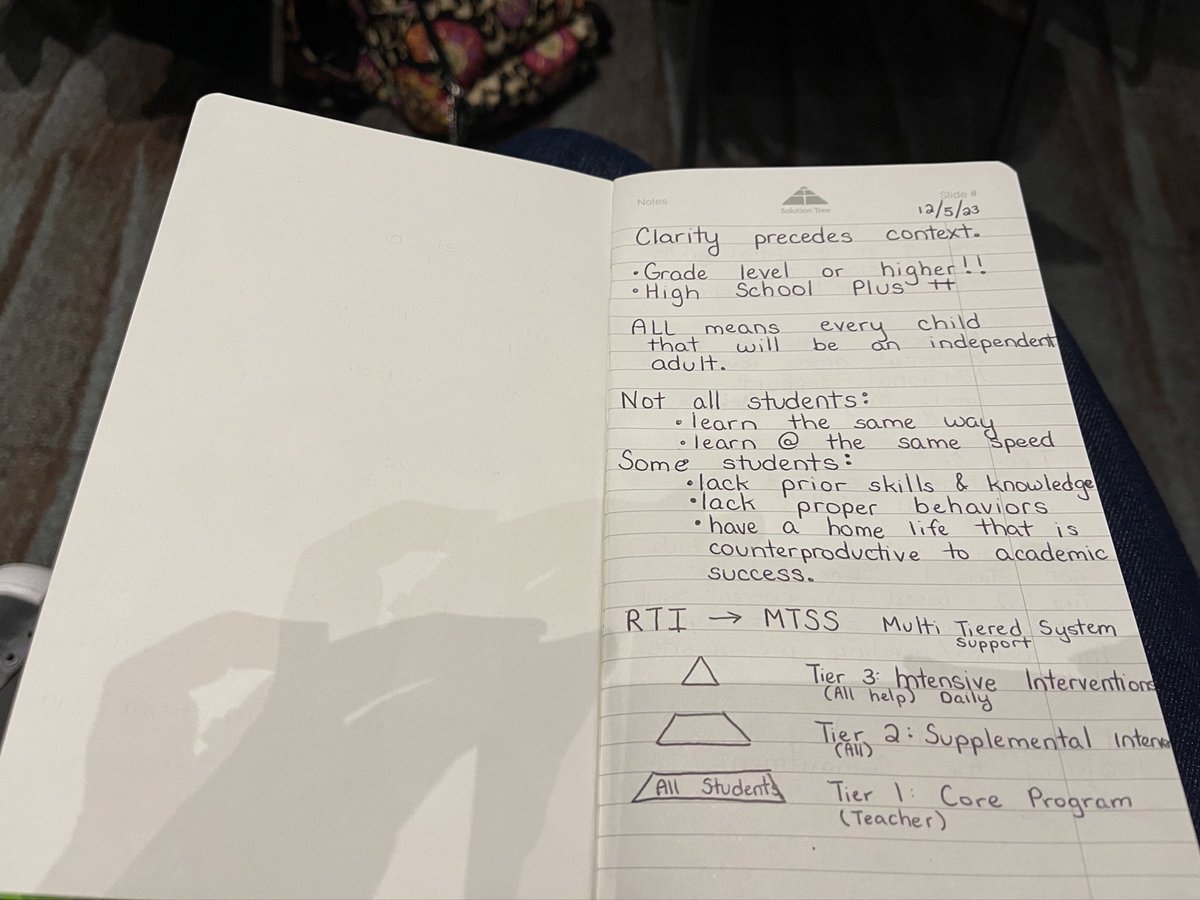 Notes
Solution Tree
Slide #
12/5/23
Clarity precedes context.
• Grade level or higher!!
• High School Plus ++
ALL means every child
that will be an independent
adult.
Not all students:
• learn the same way
• learn @ the same speed
Some students:
• lack prior skills & knowledge
• lack proper behaviors
• have a home life that is
counterproductive to academic
success.
RTI → MTSS Multi Tiered System
Support
Tier 3: Intensive Interventions
(All help) Daily
Tier 2: Supplemental Interve
(All)
All Students Tier 1: Core Program
(Teacher)